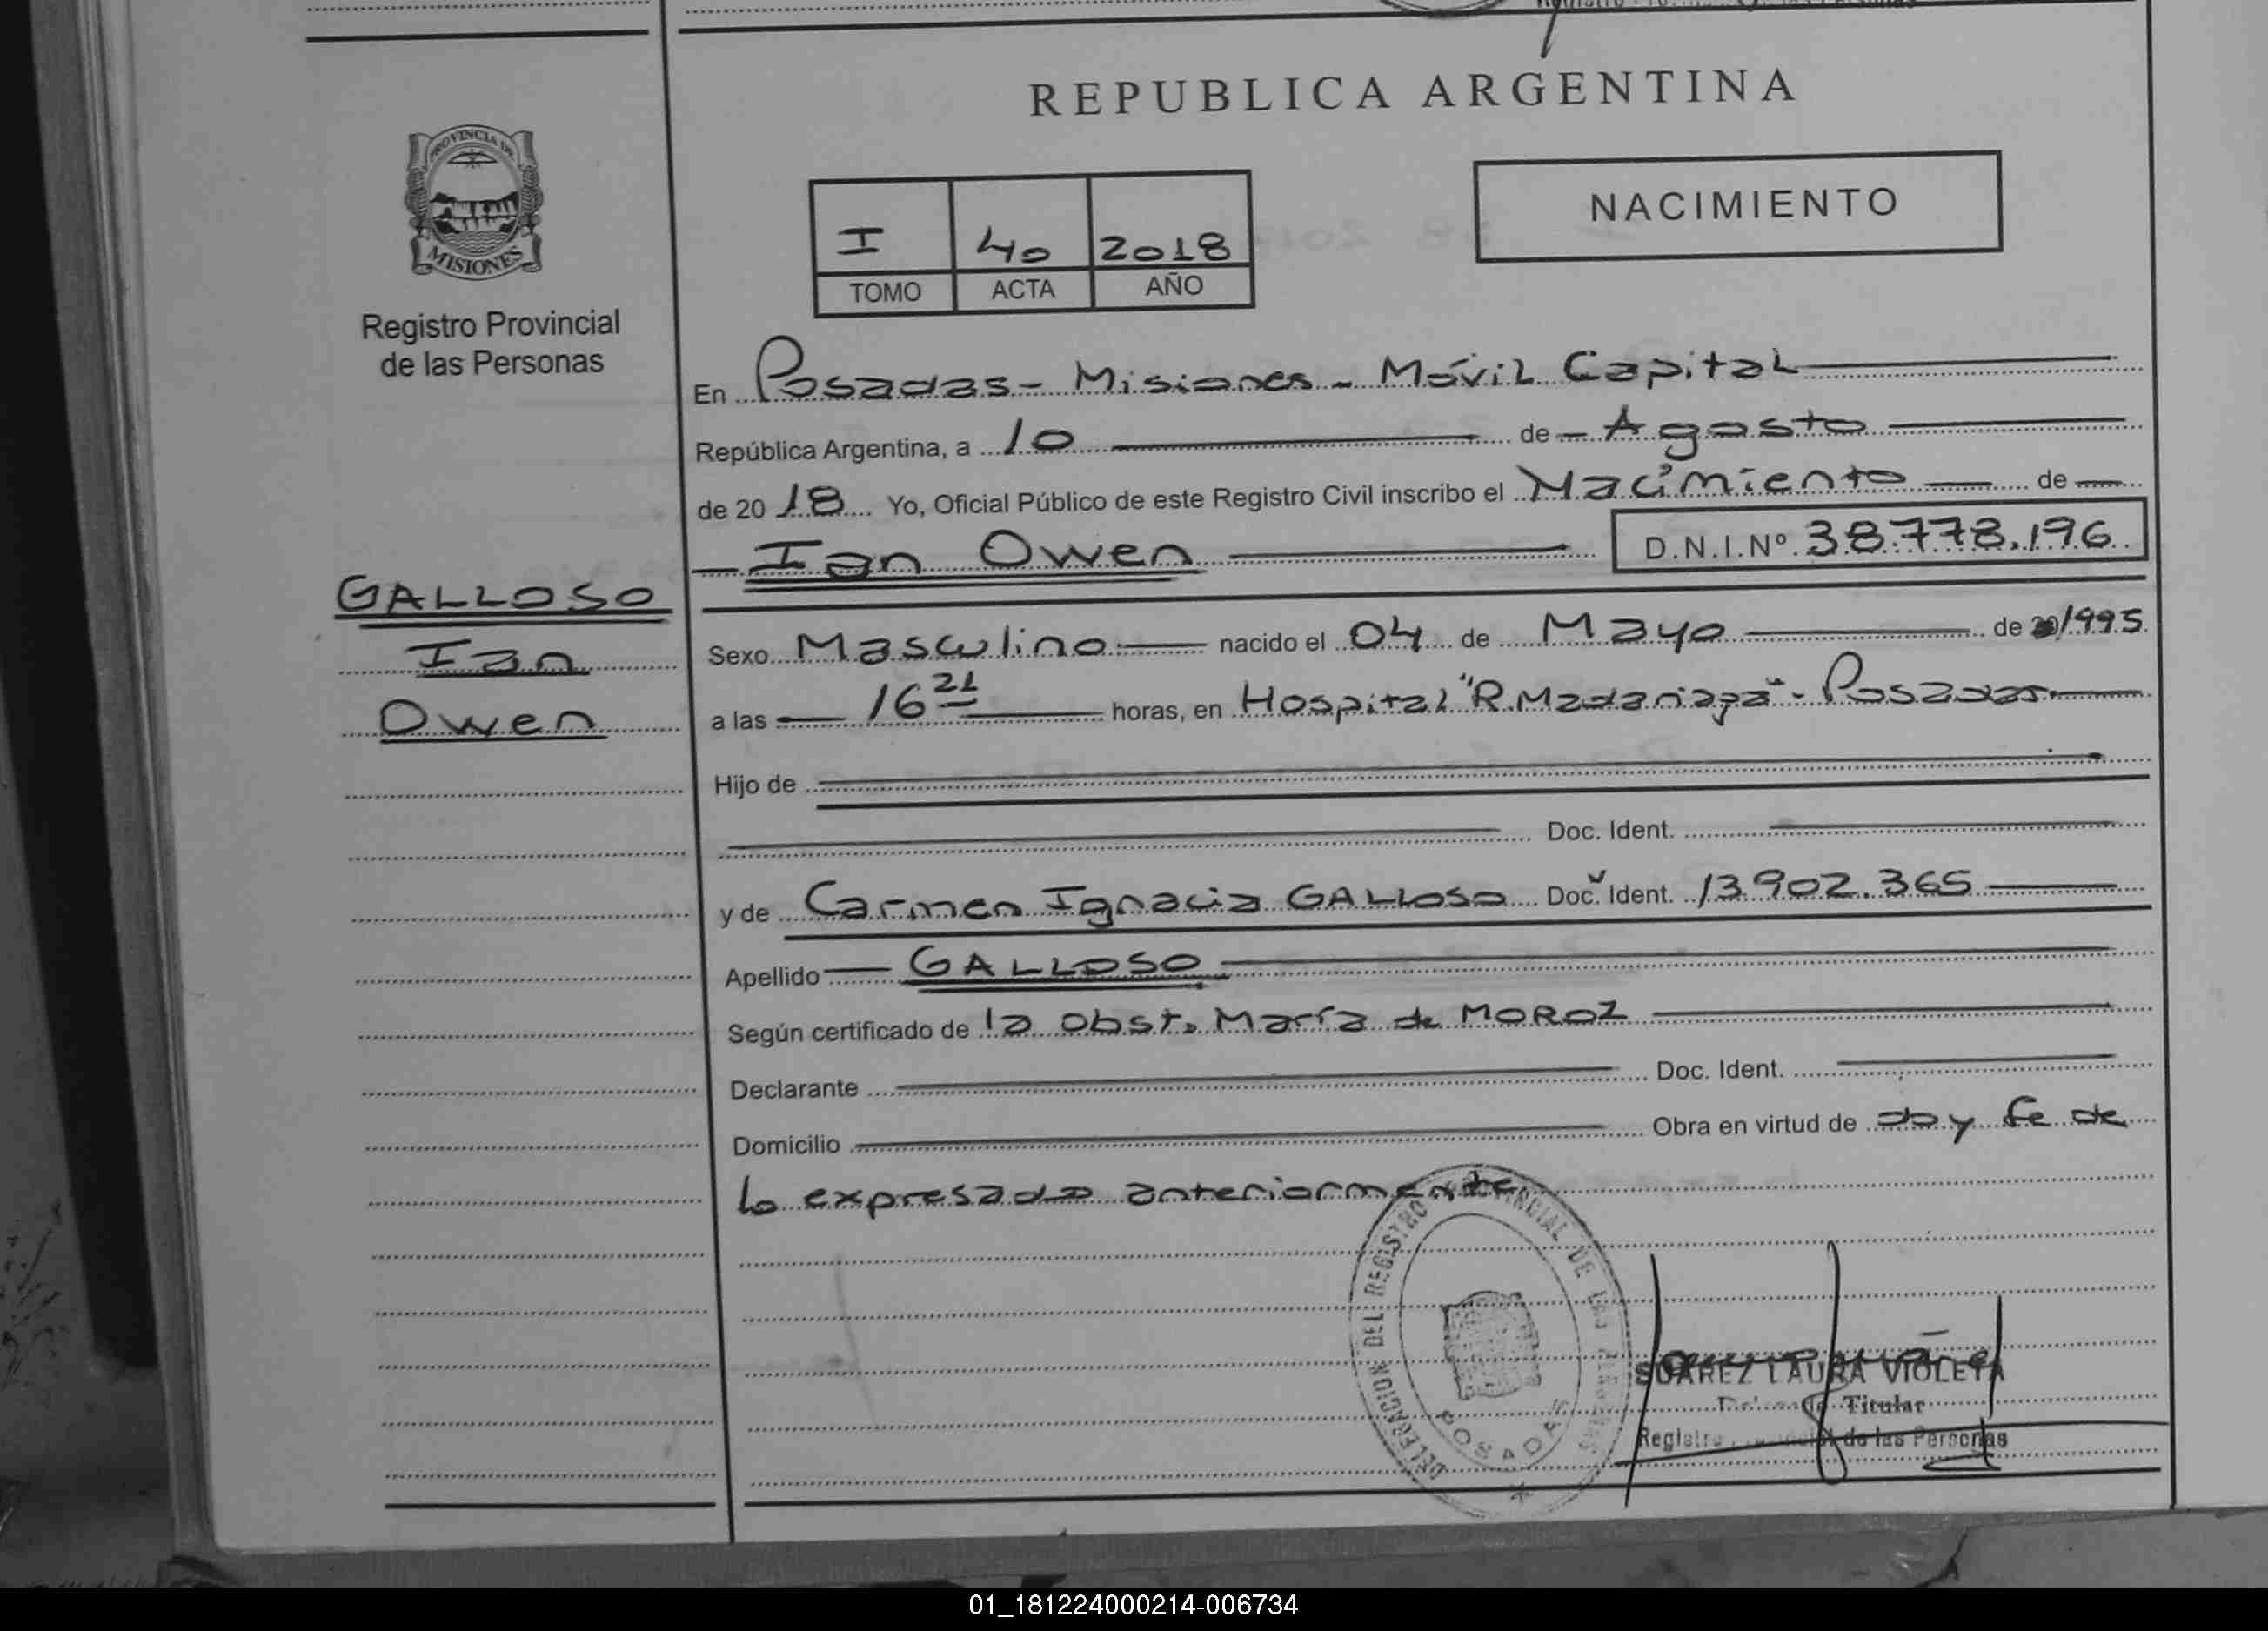 REPUBLICA ARGENTINA
PROVINCIA DE
MISIONES
Registro Provincial
de las Personas
NACIMIENTO
I 40 2018
TOMO ACTA AÑO
En Posadas - Misiones - Móvil Capital
República Argentina, a 10 de Agosto
de 2018 Yo, Oficial Público de este Registro Civil inscribo el Nacimiento de
Ian Owen D.N.I.Nº 38.778.196
GALLOSO
Ian
Owen
Sexo Masculino nacido el 04 de Mayo de 1995
a las 16 21 horas, en Hospital "R. Madariaga" - Posadas
Hijo de
Doc. Ident.
y de Carmen Ignacia GALLOSO Doc. Ident. 13.902.365
Apellido GALLOSO
Según certificado de la Obst. María de MOROZ
Declarante Doc. Ident.
Domicilio Obra en virtud de doy fe de
lo expresado anteriormente
DELEGACION DEL REGISTRO PROVINCIAL DE LAS PERSONAS
POSADAS
SUAREZ LAURA VIOLETA
Titular
Registro de las Personas
01_181224000214-006734